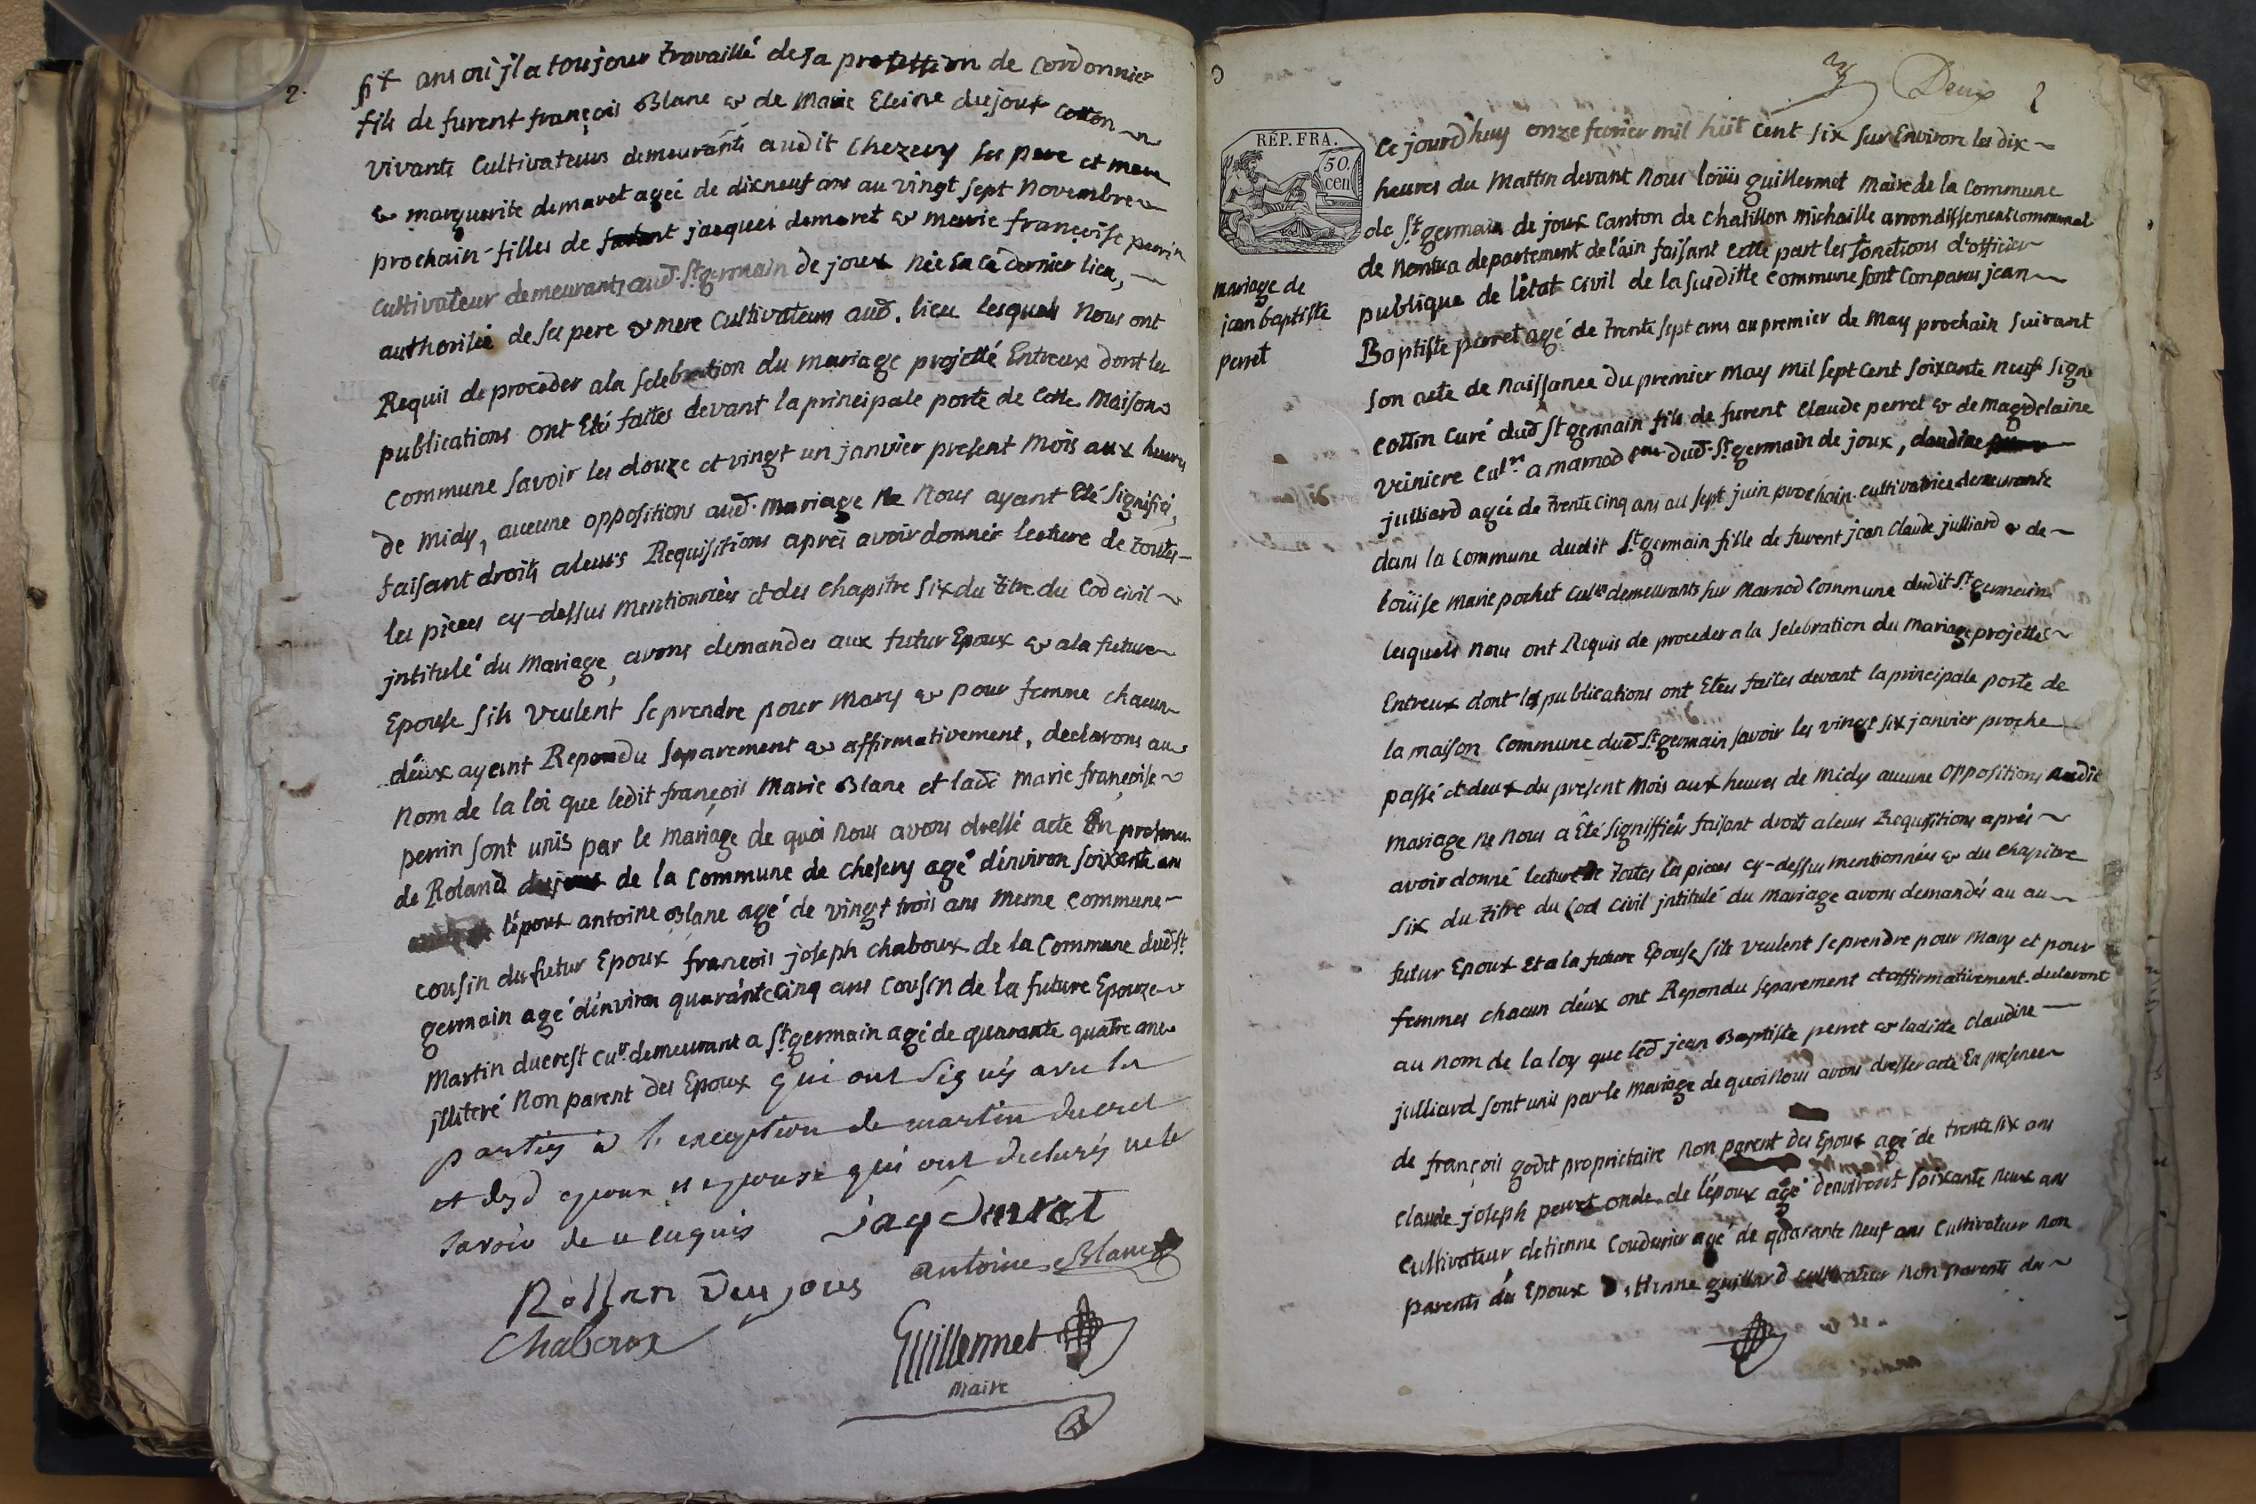 2.
six ans ou j'l a toujour travaillé de sa profession de Cordonnier
fils de furent françois Blanc & de Marie Eleine dujoux Cotton
vivants Cultivateurs demeurants audit Chezery ses pere et mere
& marguerite demaret ageé de dixneuf ans au vingt sept Novembre
prochain filles de jacques demoret & marie françoise perrin
cultivateur demeurants aud. St germain de joux Neé en ce dernier lieu,
authorisée de ses pere & mere Cultivateurs aud. lieu lesquels Nous ont
Requis de proceder a la selebration du mariage projetté Entreux dont les
publications ont Eté faites devant la principale porte de Cette Maison
Commune Savoir les douze et vingt un janvier present Mois aux heures
de midy, aucune oppositions aud. mariage Ne Nous ayant Eté signifié,
faisant droits a leurs Requisitions aprés avoir donnér lecture de toutes
les pieces cy-dessus mentionneés et des chapitre Six du titre du Cod civil
jntitulé du Mariage, avons demandes aux futur Epoux & a la future
Epouse sils veulent se prendre pour Mary & pour femme chacun
déux ayant Repondu separement & affirmativement, declarons au
Nom de la loi que ledit françois Marie Blanc et lade marie françoise
perrin sont unis par le mariage de quoi Nous avons dressé acte En presence
de Roland dujoux de la Commune de Chesery agé dénviron soixante ans
lépoux antoine Blanc agé de vingt trois ans meme Commune
cousin du futur Epoux françois joseph chaboux de la Commune dud St.
germain agé dénviron quaránte cinq ans cousin de la future Epouze
Martin ducrest Cur. demeurant a St germain agé de quarante quatre ans
jlliteré Non parent des Epoux qui ont signés avec les
parties à l'exception de martin ducret
et des d epoux et epouse qui ont declarés ne le
savoir de ce enquis
jaq Dmret
antoine Blanc
Rollan Du joux
Chaboux
Guillermet
maire
Deux
2
RÉP. FRA.
50.
cen
mariage de
jean baptiste
perret
Ce jourd'huy onze fevrier mil huit cent six sur Environ les dix
heures du Mattin devant Nous loüis guillermet Maire de la Commune
de St germain de joux Canton de Chatillon Michaille arrondissement communal
de Nantua departement de láin faisant cette part les fonctions d'officier
publique de létat Civil de la susditte Commune sont Comparus jean
Baptiste perret agé de trente sept ans au premier de May prochain suivant
son acte de Naissance du premier May mil sept Cent soixante neuf signé
cottin Curé dud St germain fils de furent Claude perret & de Magdelaine
Veiniere Culrs a marnod Cne dud. St germain de joux, claudine
julliard agée de trente Cinq ans au sept juin prochain. cultivatrice demeurante
dans la Commune dudit St germain fille de furent jean Claude julliard & de
loüise marie pochet Culrs demeurants sur Marnod Commune dudit St germain
lesquels Nous ont Requis de proceder a la selebration du mariage projettes
Entreux dont les publications ont Etés faites devant la principale porte de
la maison Commune dud St germain savoir les vingt six janvier proche
passé et deux du present Mois aux heures de Midy aucune oppositions audit
mariage ne Nous a Eté signiffieés faisant droits a leurs Requisitions aprés
avoir donné lecture de toutes les pieces cy-dessus mentionnées & du chapitre
Six du titre du Cod Civil jntitulé du Mariage avons demandés au au
futur Epoux Et a la future Epouse sils veulent se prendre pour Mary et pour
femmes chacun déux ont Repondu separement et affirmativement declaront
au Nom de la loy que led jean Baptiste perret & laditte Claudine
julliard sont unis par le mariage de quoi Nous avons dresser acte En presence
de françois godet proprietaire Non parent des Epoux agé de trente six ans
Claude joseph perret oncle de l'époux agé denviront soixante neux ans
Cultivateur, detienne Coudurier agé de quarante Neuf ans Cultivateur Non
parents dés Epoux Etienne guillard cultivateur Non parents des